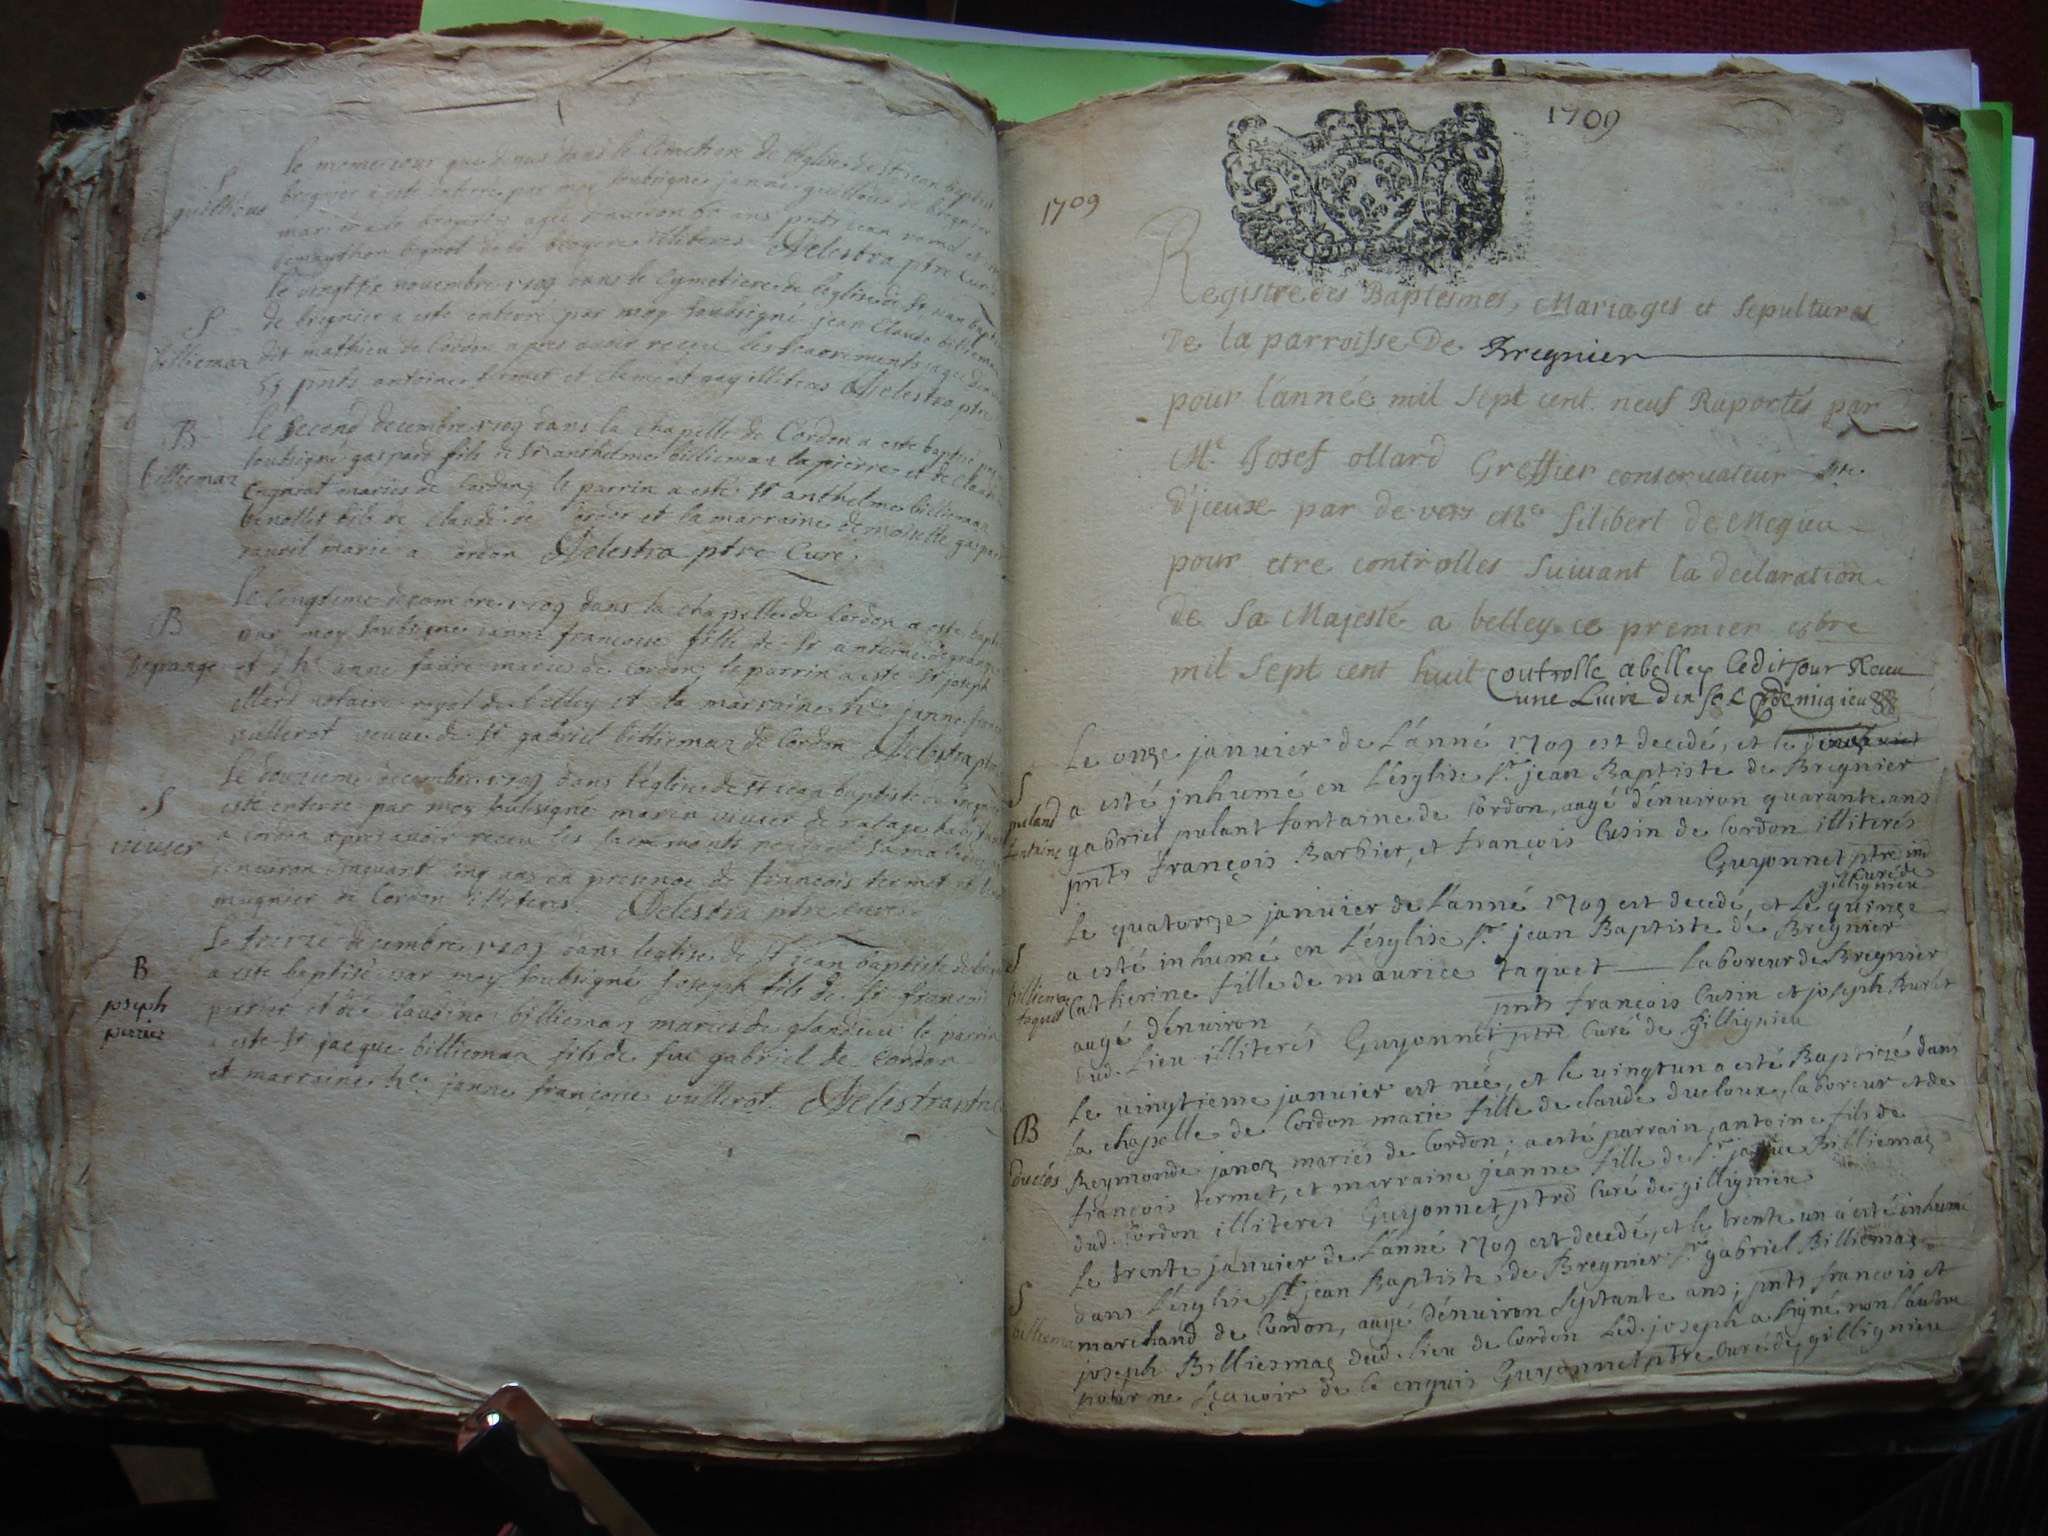 S
guillions
Le meme jour que dessus dans le Cimetiere de l'eglise de st jean baptiste
bregnier a este enterré par moy soubsigné janne guillions de bregnier
agée d'environ ans pnts jean
illiteres Delestra ptre Curé
Le vingt novembre 1709 dans le Cymetiere de l'eglise de st jean bapt
S
billiemaz
de bregnier a este enterré par moy soubsigné jean Claude billiemaz
dit mathieu de Cordon apres avoir receu les sacrements agé
55 pnts antoine termet et Clement gay illiteras Delestra ptre
B
billiemaz
Le second decembre 1709 dans la chapelle de Cordon a este baptisé par
soubsigné gaspard fils de sr anthelme billiemaz la pierre et de claudine
mariés de Cordon, le parrin a esté sr anthelme billiemaz
fils de claude de Cordon et la marraine demoiselle gaspar
marie a Cordon Delestra ptre Curé
B
degrange
Le cinqieme decembre 1709 dans la chapelle de Cordon a este bapti
par moy soubsigné janne francoise fille de sr anteine degrange
et d hte anne faure mariés de Cordon, le parrin a este sr joseph
ollard notaire royal de belley et la marraine hte janne franc
vullerot veuve de sr gabriel billiemaz de Cordon Delestra ptre
S
vivier
Le douzieme decembre 1709 dans l'eglise de st jean baptiste de bregnier
este enterre par moy soubsigné marin vivier de
a Cordon apres avoir receu les sacrements pendant sa maladie
d'environ cinquant cinq ans en presence de francois termet et
mugnier de Cordon illiteres. Delestra ptre curé
B
joseph
perrier
Le treize decembre 1709 dans leglise de st jean baptiste de
a este baptisé par moy soubsigné joseph fils de sr francois
perrier et de claudine billiemaz mariés de glandieu le parrin
a este sr jacque billiemaz fils de fue gabriel de cordon
et marraine hte janne françoise vullerot. Delestra ptre
1709
1709
Registre des Baptesmes, Mariages et Sepultures
De la parroisse De Bregnier
pour l'année mil sept cent neuf Raportés par
Me. Josef ollard Greffier conservateur
d'jceux par de vers Me Filibert de Megieu
pour etre controlles suivant la declaration
de Sa Majesté a belley ce premier 
mil Sept cent huit Controlle a belley Ledit jour Receu
une Livre dix so demigieu
Le onze janvier de L'anné 1709 est decedé, et le
S
puland
fontaine
a esté jnhumé en L'ésglise st. jean Baptiste de Bregnier
gabriel pulant fontaine de Cordon, augé d'énuiron quarante ans
pnts françois Barbier, et françois Cusin de Cordon illiterés
Guyonnet ptre
curé de
gillignieu
Le quatorze janvier de L'anné 1709 est decedé, et Le quinze
S
billiemaz
taquet
a esté inhumé en L'ésglise st. jean Baptiste de Bregnier
Catherine fille de maurice taquet — laboreur de Bregnier
augé d'énuiron pnts françois Cusin et joseph Burlet
dud. lieu illiterés Guyonnet ptre Curé de gillignieu
Le vingtieme janvier est née, et le vingtun a esté Baptizé dans
B
duclos
la chapelle de Cordon marie fille de claude ducloux, laboreur et de
Reymonde janoz mariés de Cordon; a esté parrain antoine fils de
françois termet, et marraine jéanne fille de sr. jaque Billiemaz
dud. Cordon illiteres Guyonnet ptre Curé de gillignieu
Le trente janvier de L'anné 1709 est decedé, et le trente un a esté inhumé
S
billiemaz
dans L'ésglise st. jean Baptiste de Bregnier sr. gabriel Billiemaz
marchand de Cordon, augé d'énuiron septante ans; pnts françois et
joseph Billiesmaz dud. lieu de Cordon Led. joseph a signé non l'autre
pour ne sçavoir de ce enquis Guyonnet ptre Curé de gillignieu